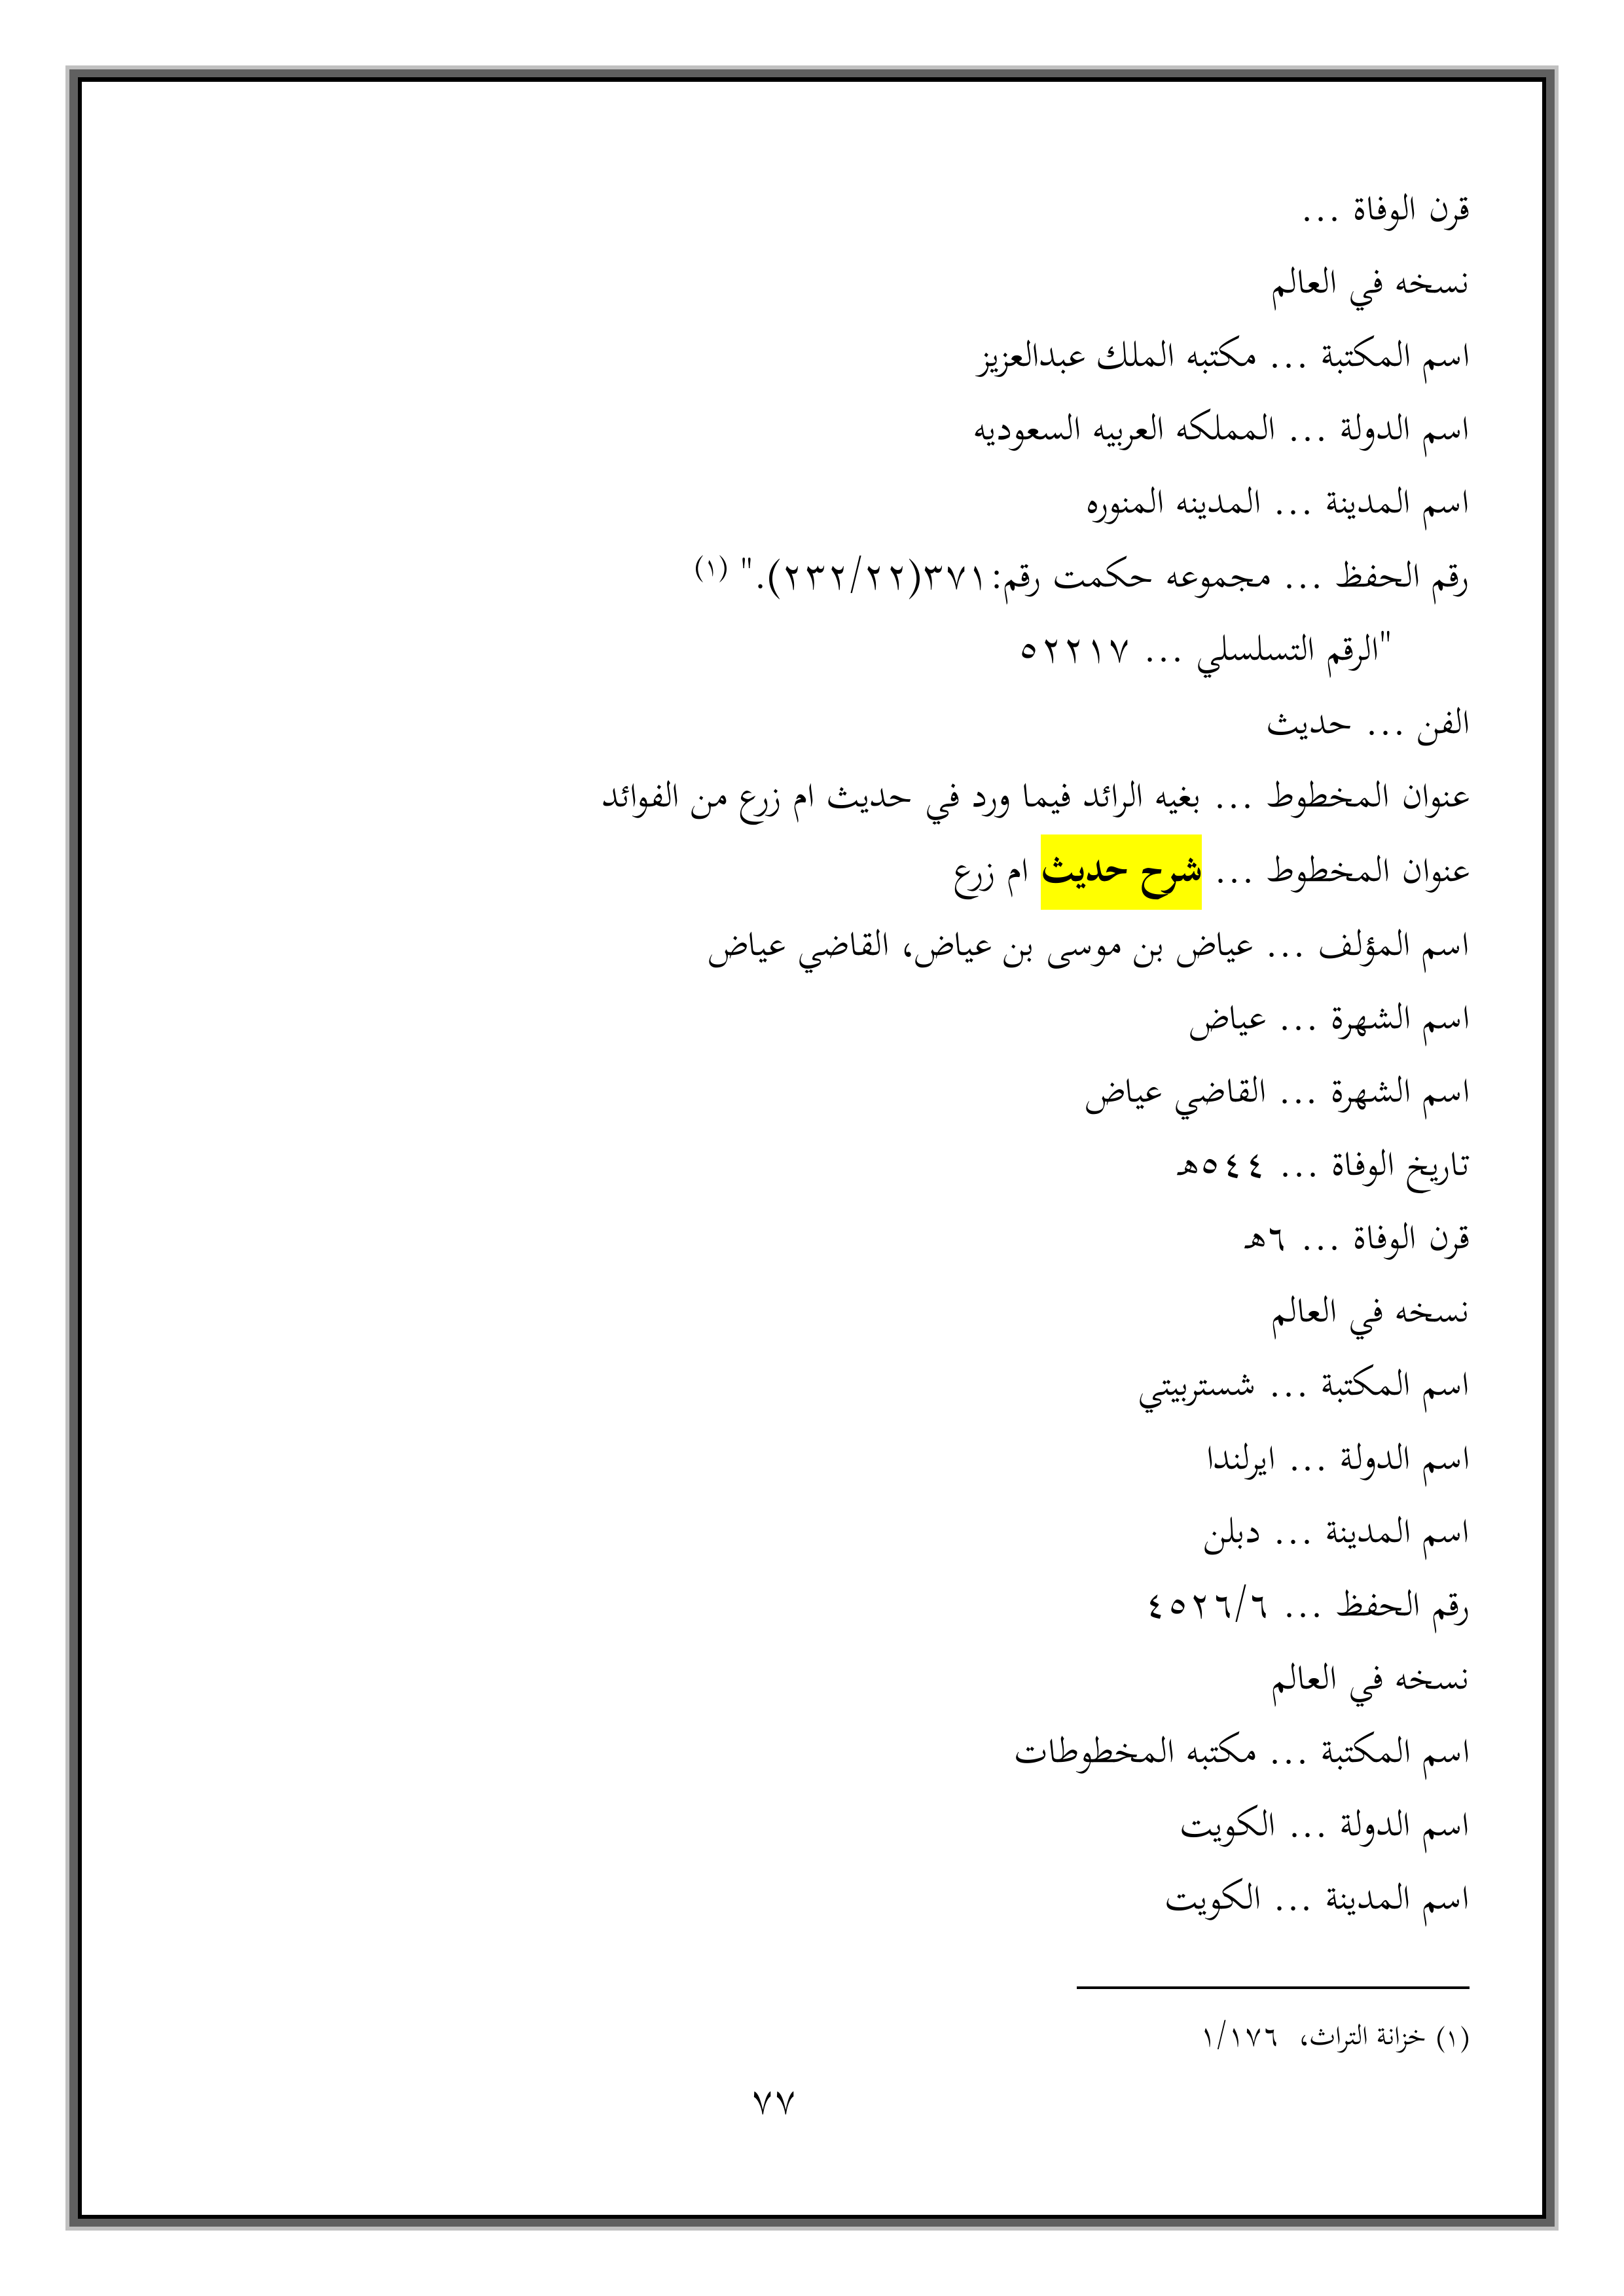 قرن الوفاة ...
نسخه في العالم
اسم المكتبة ... مكتبه الملك عبدالعزيز
اسم الدولة ... المملكه العربيه السعوديه
اسم المدينة ... المدينه المنوره
رقم الحفظ ... مجموعه حكمت رقم:٣٧١(٢٣٢/٢٢)." (١)
"الرقم التسلسلي ... ٥٢٢١٧
الفن ... حديث
عنوان المخطوط ... بغيه الرائد فيما ورد في حديث ام زرع من الفوائد
عنوان المخطوط ... شرح حديث ام زرع
اسم المؤلف ... عياض بن موسى بن عياض، القاضي عياض
اسم الشهرة ... عياض
اسم الشهرة ... القاضي عياض
تاريخ الوفاة ... ٥٤٤هـ
قرن الوفاة ... ٦هـ
نسخه في العالم
اسم المكتبة ... شستربيتي
اسم الدولة ... ايرلندا
اسم المدينة ... دبلن
رقم الحفظ ... ٤٥٢٦/٦
نسخه في العالم
اسم المكتبة ... مكتبه المخطوطات
اسم الدولة ... الكويت
اسم المدينة ... الكويت
(١) خزانة التراث، ١/١٧٦
٧٧